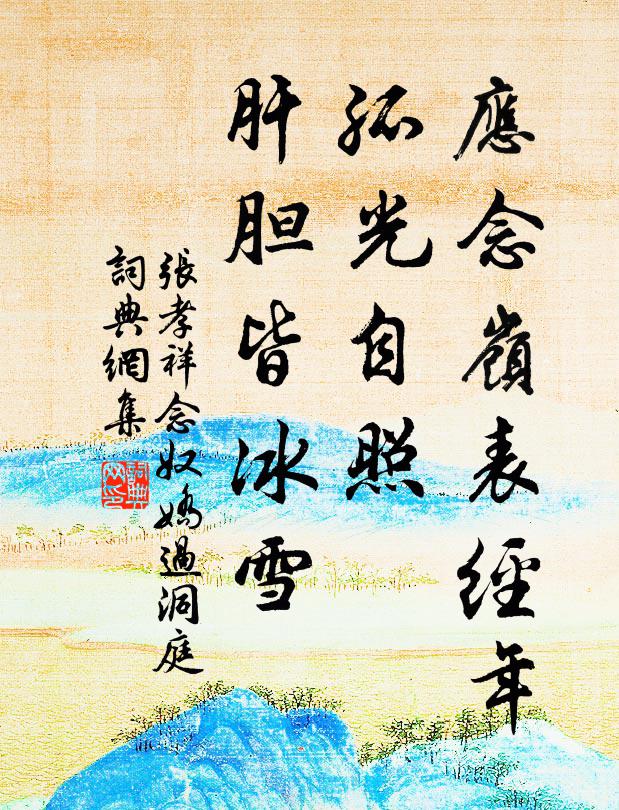 應念嶺表經年
孤光自照
肝胆皆冰雪
張孝祥念奴嬌過洞庭
詞典網集